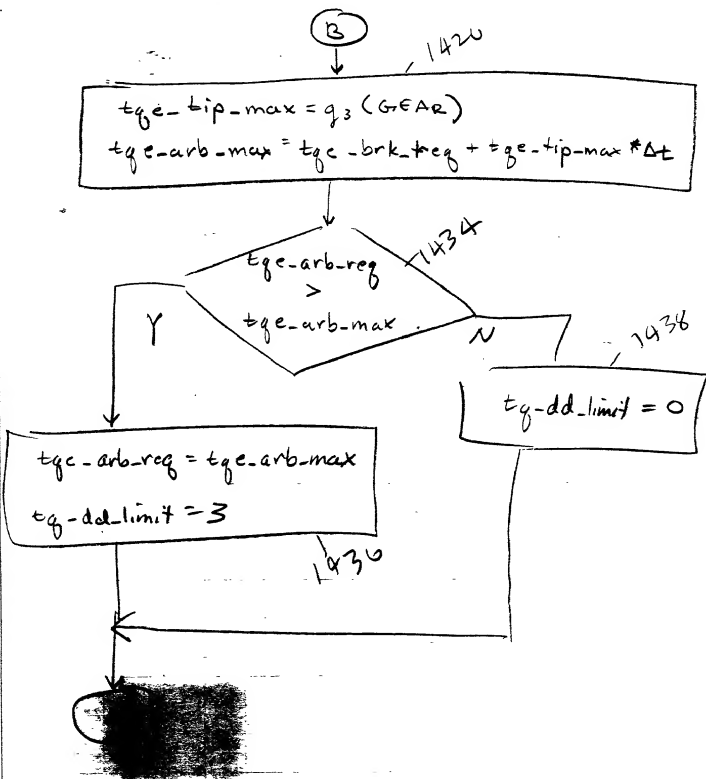 B
1420
tqe_tip_max = g3 (GEAR)
tqe_arb_max = tqe_brk_req + tqe_tip_max * Δt
tqe_arb_req
>
tqe_arb_max
1434
Y
N
1438
tq_dd_limit = 0
tqe_arb_req = tqe_arb_max
tq_dd_limit = 3
1436